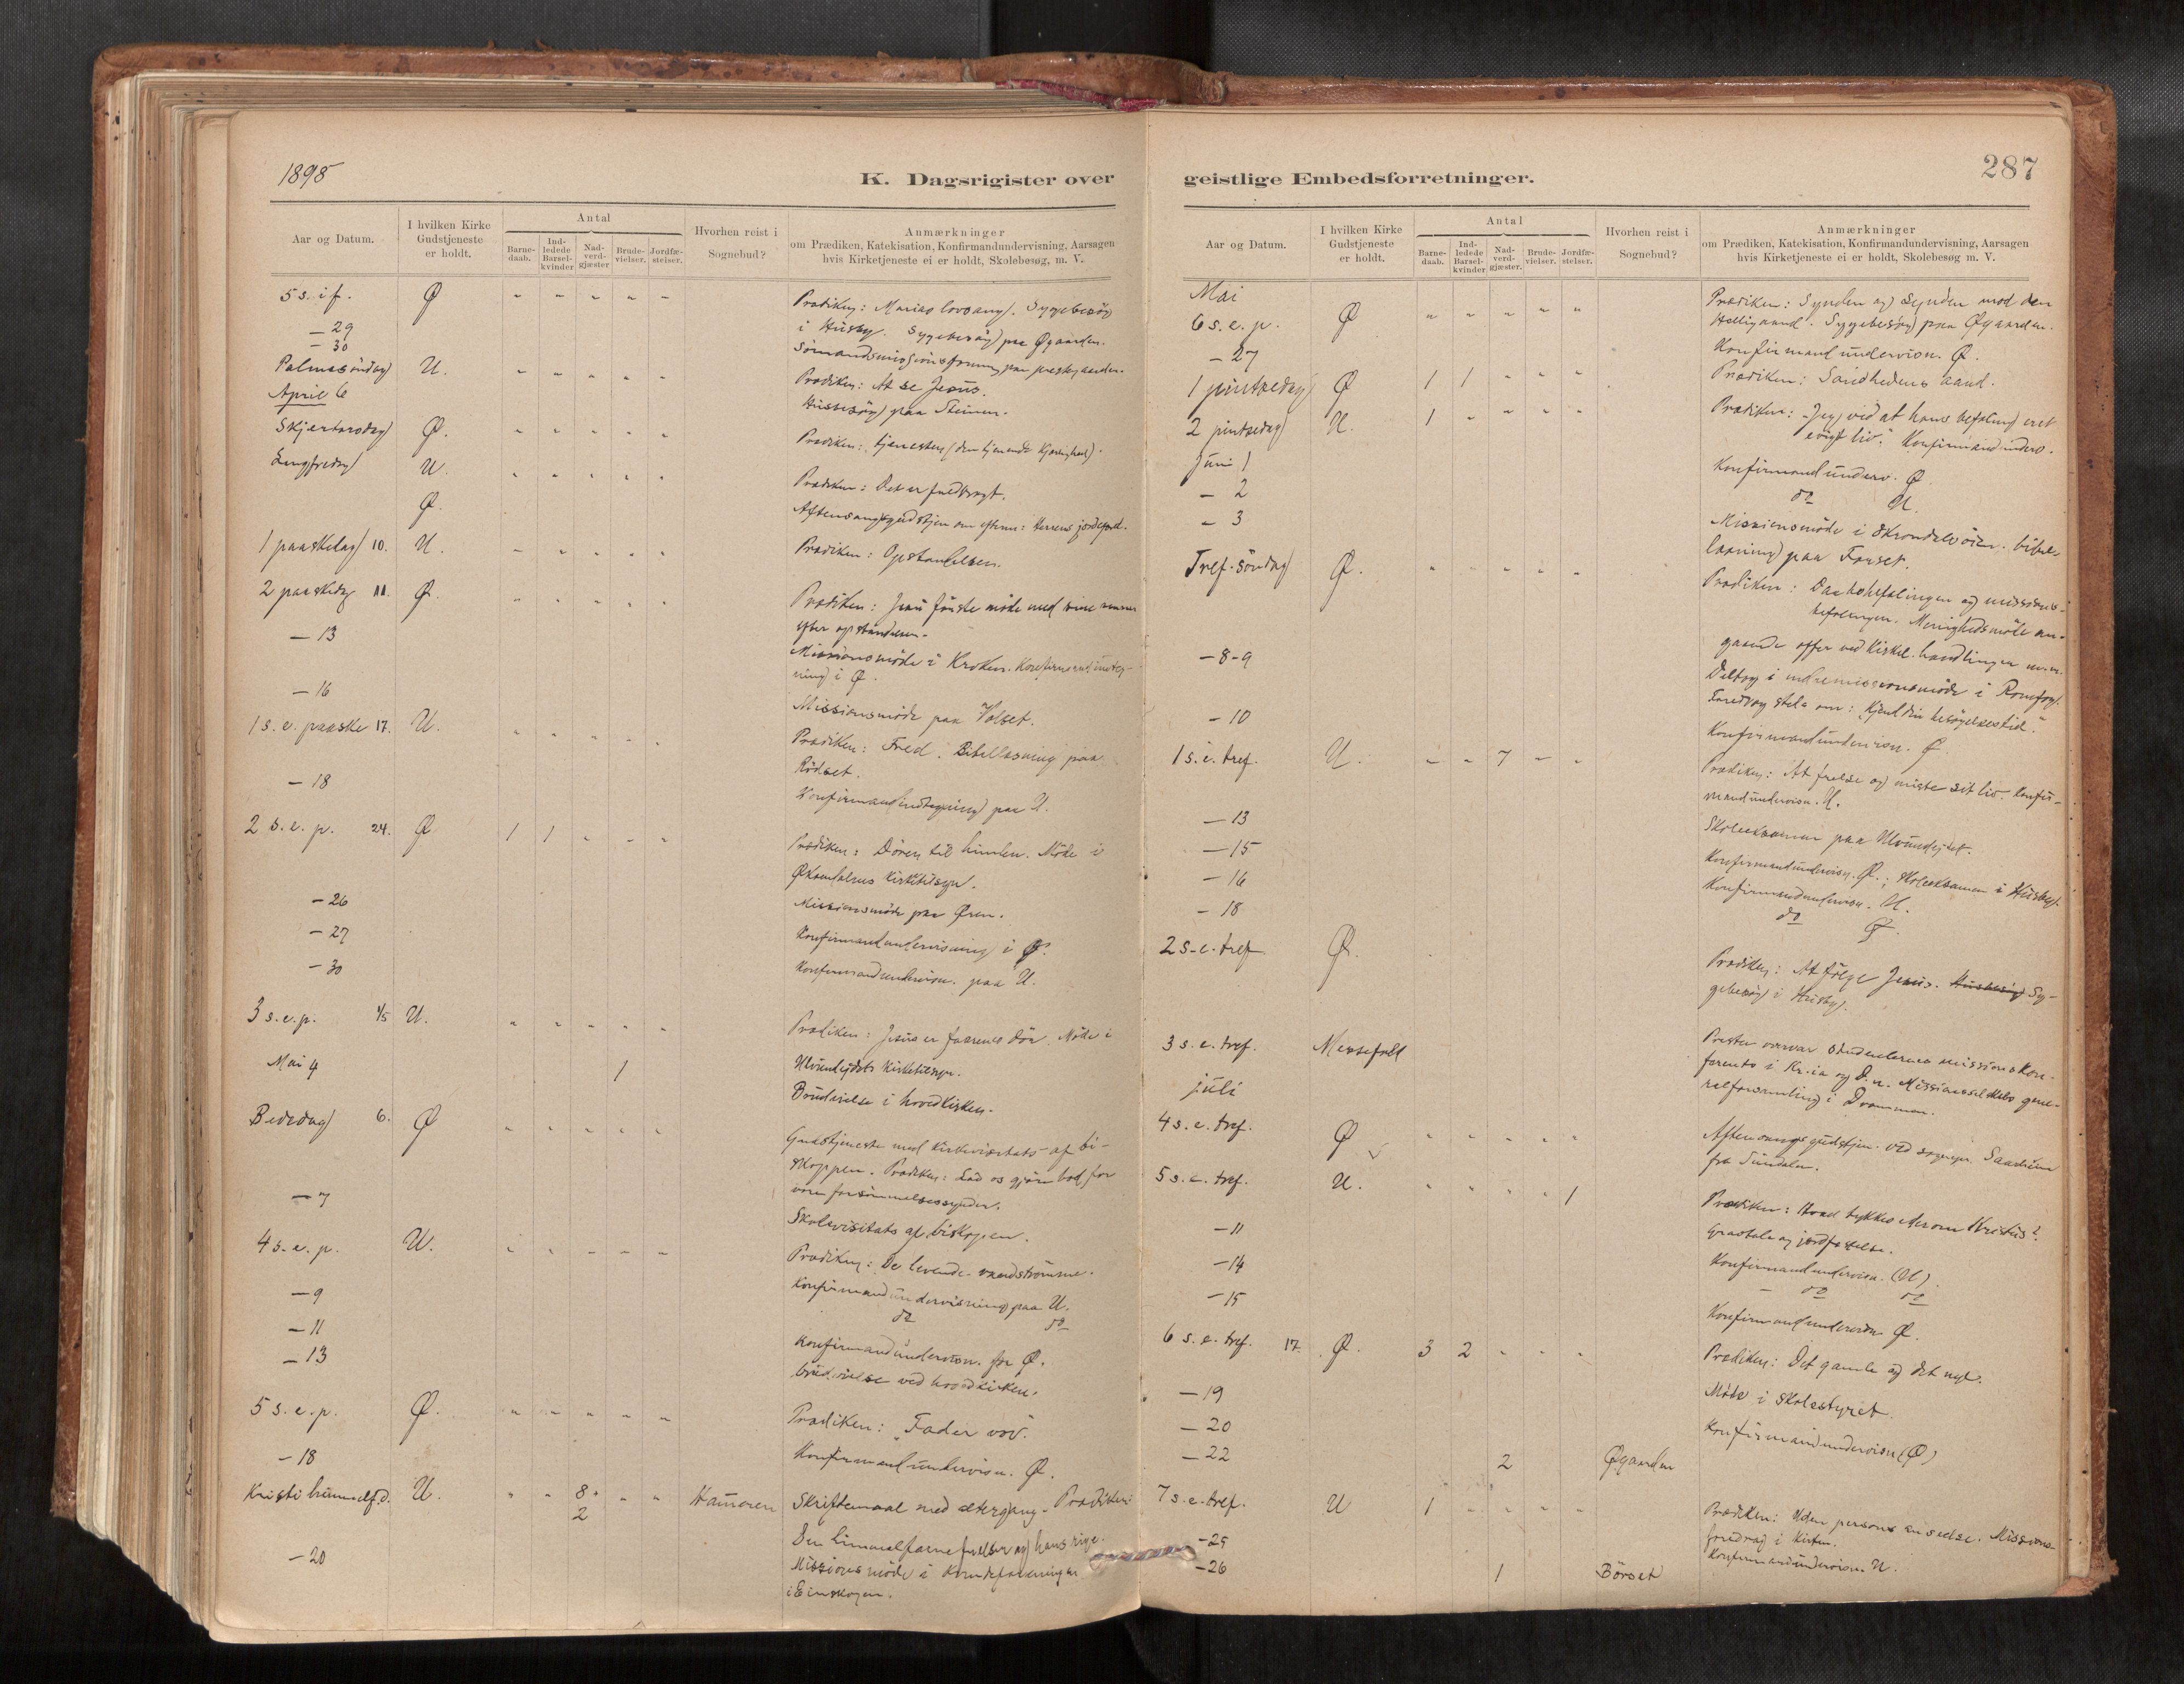 1898
K. Dagsrigister over
Aar og Datum.
I hvilken Kirke
Gudstjeneste
er holdt.
Antal
Barne-
daab.
Ind-
ledede
Barsel-
kvinder
Nad-
verd-
gjæster
Brude-
vielser.
Jordfæ-
stelser.
Hvorhen reist i
Sognebud?
Anmærkninger
om Prædiken, Katekisation, Konfirmandundervisning, Aarsagen
hvis Kirketjeneste ei er holdt, Skolebesøg, m. V.
5 s. i f. Ø " " " " " Prædiken: Marias lovsang. Sygebesøg
— 29 i Husby. Sygebesøg paa Øgaarden.
— 30 Sømandsmissionsforening paa prestegaarden.
Palmesøndag U. " " " " " Prædiken: At se Jesus.
April 6 Husbesøg paa
Skjertorsdag Ø. " " " " " Prædiken: tjenesten (den tjenende Kjærlighed).
Langfredag U. " " " " " Prædiken: Det er fuldbragt.
Ø. Aftensangsgudstjen om efterm: Herrens jordefærd.
1 paaskedag 10. U. " " " " " Prædiken: Opstandelsen.
2 paaskedag 11. Ø. " " " " " Prædiken: Jesu første møde med sine venner
efter opstandelsen.
— 13 Missionsmøde i Kroken. Konfirmandindteg-
ning i Ø.
— 16 Missionsmøde paa Volset.
1 s. e. paaske 17. U. " " " " " Prædiken: Fred. Bibellæsning paa
Rødset.
— 18 Konfirmandindtegning paa U.
2 s. e. p. 24. Ø 1 1 " " " Prædiken: Døren til himlen. Møde i
Øksendalens Kirketilsyn.
— 26 Missionsmøde paa Øren.
— 27 Konfirmandundervisning i Ø.
— 30 Konfirmandundervisn. paa U.
3 s. e. p. 1/5 U. " " " " " Prædiken: Jesus er faarenes dør. Møde i
Ulvundejdets Kirketilsyn.
Mai 4 1 Brudevielse i hovedkirken.
Bededag 6. Ø " " " " " Gudstjeneste med Kirkevisitats af bi-
skoppen. Prædiken: Lad os gjøre bod for
vore forsømmelsessynder.
— 7 Skolevisitats af biskopen.
4 s. e. p. U. " " " " " Prædiken: De levende vandstrømme.
— 9 Konfirmandundervisning paa U.
— 11 do do
— 13 Konfirmandundervisn. for Ø.
brudevielse ved hovedkirken.
5 s. e. p. Ø. " " " " " Prædiken: "Fader vor".
— 18 Konfirmandundervisn. Ø.
Kristi himmelf.d. U. " " 8 + " " Hammeren Skriftemaal med altergang. Prædiken:
2
Den himmelfarne frelser og hans rige.
— 20 Missionsmøde i
i Einskogen.
287
geistlige Embedsforretninger.
Aar og Datum.
I hvilken Kirke
Gudstjeneste
er holdt.
Antal
Barne-
daab.
Ind-
ledede
Barsel-
kvinder
Nad-
verd-
gjæster.
Brude-
vielser.
Jordfæ-
stelser.
Hvorhen reist i
Sognebud?
Anmærkninger
om Prædiken, Katekisation, Konfirmandundervisning, Aarsagen
hvis Kirketjeneste ei er holdt, Skolebesøg m. V.
Mai
6 s. e. p. Ø " " " " " Prædiken: Synden og Synden mod den
Helligaand. Sygebesøg paa Øgaarden.
— 27 Konfirmandundervisn. Ø.
1 pintsedag Ø 1 1 " " " Prædiken: Sandhedens aand.
2 pintsedag U. 1 " " " " Prædiken: "Jeg ved at hans befaling er et
evigt liv." Konfirmandunderv.
Juni 1 Konfirmandunderv. Ø.
— 2 do U.
— 3 Missionsmøde i bibel-
læsning paa Forset.
Tref. søndag Ø. " " " " " Prædiken: Daabsbefalingen og missions-
befalingen. Menighedsmøde an-
gaaende offer ved kirkel. handlinger m.m.
— 8-9 Deltog i indremissionsmøde i
Foredrag : "Kjend din besøgelsestid."
— 10 Konfirmandundervisn. Ø.
1 s. e. tref. U. " " 7 " " Prædiken: At frelse og miste sit liv. Konfir-
mandundervisn. U.
— 13 Skoleeksamen paa Ulvundejdet.
— 15 Konfirmandundervisn. Ø.; Skoleeksamen i Husby.
— 16 Konfirmandundervisn. U.
— 18 do Ø.
2 s. e. tref Ø. Prædiken: At følge Jesus. Husbesøg Sy-
gebesøg i Husby.
3 s. e. tref. Messefald Presten overvar Studenternes missionskon-
ferents i Kr.ia og D. n. Missionsselskabs gene-
ralforsamling i Drammen.
juli
4 s. e. tref. Ø " " " " " Aftensangsgudstjen. ved sognepr.
fra Sundalen.
5 s. e. tref. U. " " " " 1 Prædiken: Hvad tykkes eder om Kristus?
Gravtale og jordfæstelse.
— 11 Konfirmandundervisn. (U).
— 14 — do do
— 15 Konfirmandundervisn Ø.
6 s. e. tref. 17. Ø. 3 2 " " " Prædiken: Det gamle og det nye.
— 19 Møde i skolestyret.
— 20 Konfirmandundervisn (Ø)
— 22 2 Øgaarden
7 s. e. tref. U 1 " " " " Prædiken: Uden persons anseelse. Missions-
foredrag i Kirken.
— 25 Konfirmandundervisn. U.
— 26 1 Børset